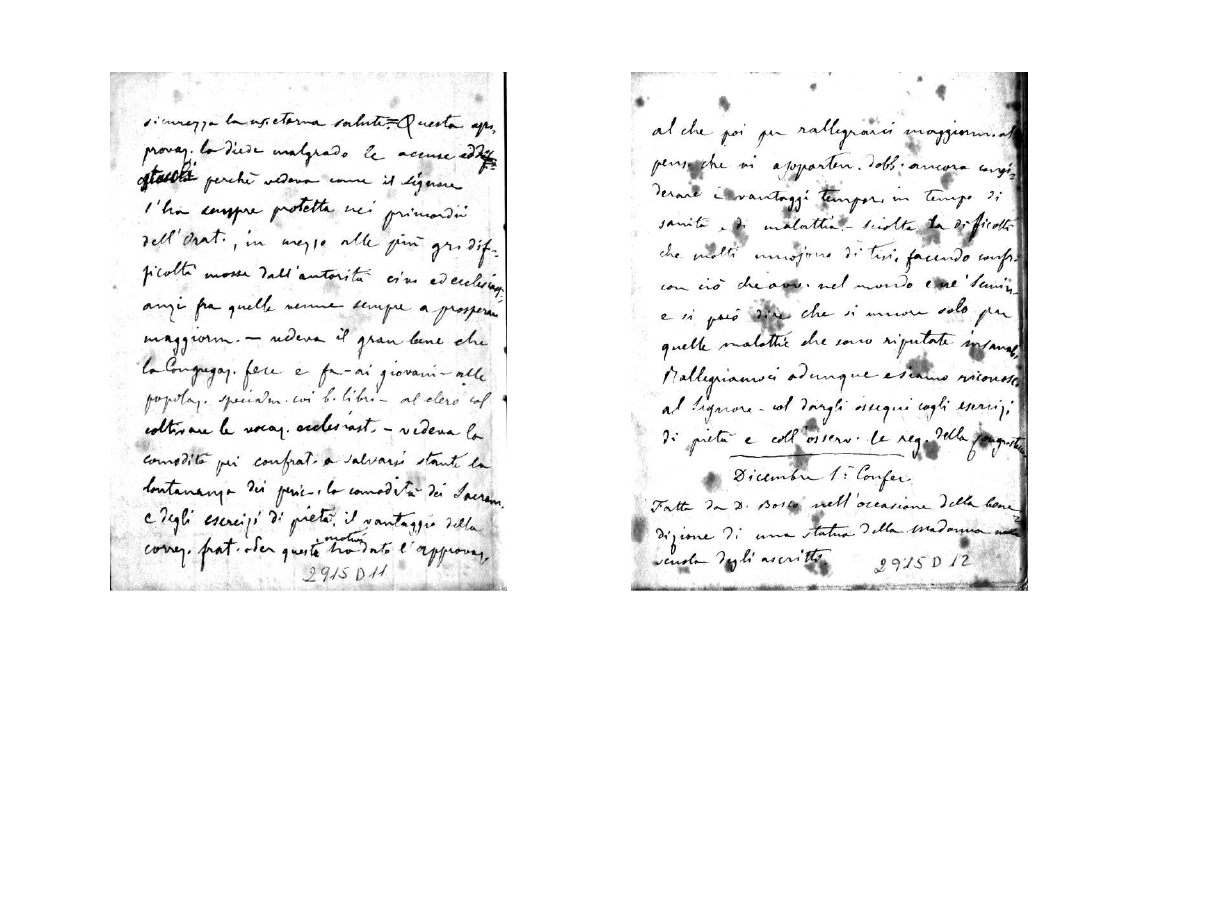 sicurezza la nos. eterna salute.= Questa ap-
provaz. la diede malgrado le accuse ed
ostacoli perchè vedeva come il Signore
l'ha sempre protetta nei primordii
dell'Orat., in mezzo alle più gr. dif-
ficoltà mosse dall'autorità civ. ed ecclesiast.
anzi fra quelle venne sempre a prosperare
maggiorm. — vedeva il gran bene che
la Congregaz. fece e fa - ai giovani - alle
popolaz. specialm. coi b. libri - al clero col
coltivare le vocaz. ecclesiast. - vedeva la
comodità pei confrat. a salvarsi stante la
lontananza dei peric., la comodità dei Sacram.
e degli esercizi di pietà, il vantaggio della
correz. frat. - Per questi motivi ha dato l'approvaz.
2915 D 11
al che poi per rallegrarci maggiorm. al
pens. che vi apparten. dobb. ancora consi-
derare i vantaggi tempor. in tempo di
sanità e di malattia - sciolta la difficoltà
che molti muojono di tisi, facendo confr.
con ciò che avv. nel mondo e ne' Semin.
e si può dire che si muore solo per
quelle malattie che sono riputate insanab.
Rallegriamoci adunque e siamo riconosc.
al Signore - col dargli ossequi cogli esercizi
di pietà e coll'osserv. le reg. della Congregaz.
Dicembre 1ª Confer.
Fatta da D. Bosco nell'occasione della bene-
dizione di una statua della Madonna nella
scuola degli ascritti.
2915 D 12